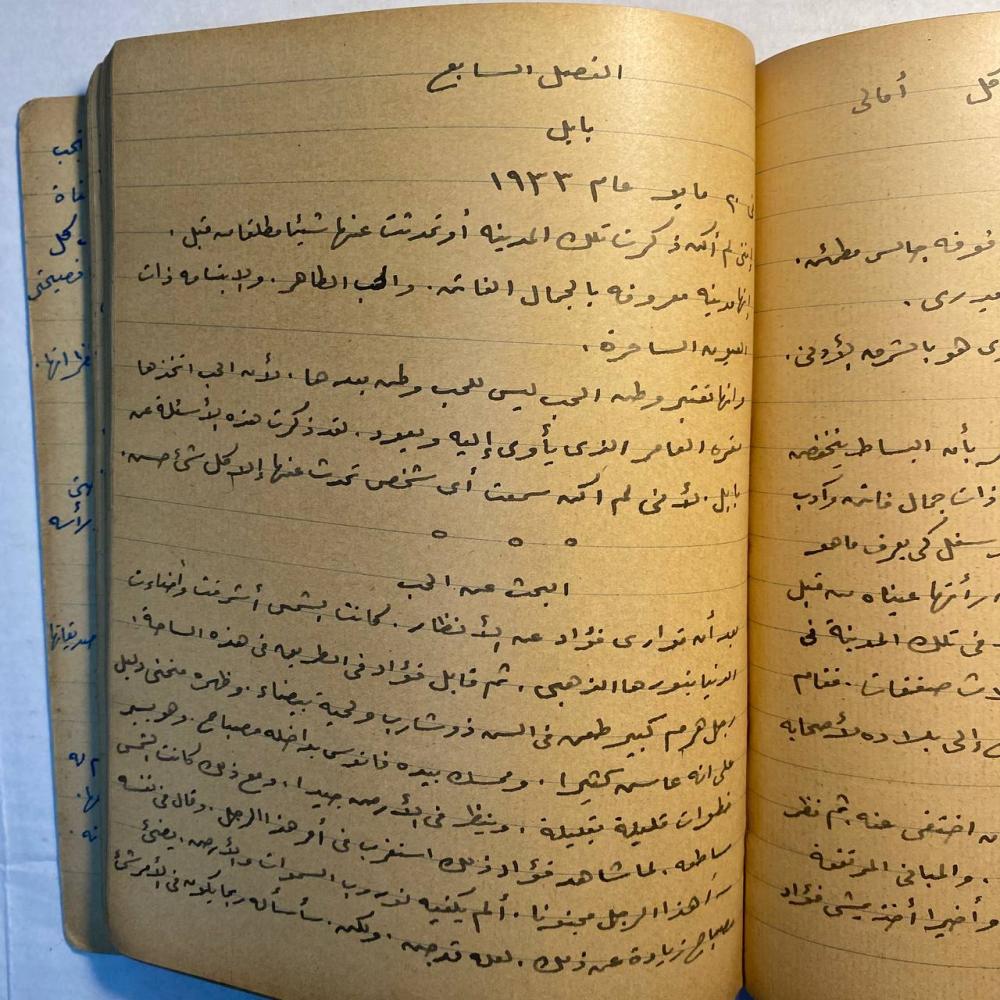 الفصل السابع
بابل
في ٢٠ مايو عام ١٩٣٣
إنني لم أكن ذكرت تلك المدينه أو تحدثت عنها شيئا مطلقا من قبل .
إنها مدينه معروفه بالجمال الفاتن . والحب الطاهر . والابتسامه ذات
العيون الساحرة .
وانها تعتبر وطن الحب ليس للحب وطن بعدها . لأن الحب اتخذها
مقره العامر الذى يأوى إليه ويعود . لقد ذكرت هذه الأسئلة عن
بابل . لأننى لم اكن سمعت أى شخص تحدث عنها إلا كل شئ حسن .
البحث عن الحب
بعد أن توارى فؤاد عن الأنظار . كانت الشمس أشرقت وأضاءت
الدنيا بنورها الذهبى . ثم قابل فؤاد فى الطريق فى هذه الساحة .
رجل هرم كبير طعن فى السن ذو شارب ولحية بيضاء . وظهره منحنى دليل
على انه عاس كثيرا . وممسك بيده فانوس بداخله مصباح . وهو يسير
خطوات قليلة بقليلة . وينظر فى الأرض جيدا . ومع ذلك كانت الشمس
ساطعه . لما شاهد فؤاد ذلك استغرب فى أمر هذا الرجل . وقال فى نفسه
هذا الرجل مجنونا . ألم يكفيه نور رب السموات والأرض . يضئ
مصباح زيادة عن ذلك . لعله قد جن . ولكن . سأسأله ربما يكون فى الأمر شئ
كل أمالى
فوقه جالس مطمئن .
يدرى .
هو بالشرفه الأولى .
بأن البساط ينخفض
ذات جمال فاتن وأدب
سفل كى يعرف ماهو
رأتها عيناه من قبل
فى تلك المدينة فى
ث صفقات . فقام
إلى بلاده لأصحابه
اختفى عنه . ثم نظر
. والمبانى المرتفعة
وأخيرا أخذ يمشى فؤاد
كل
صديقاتها